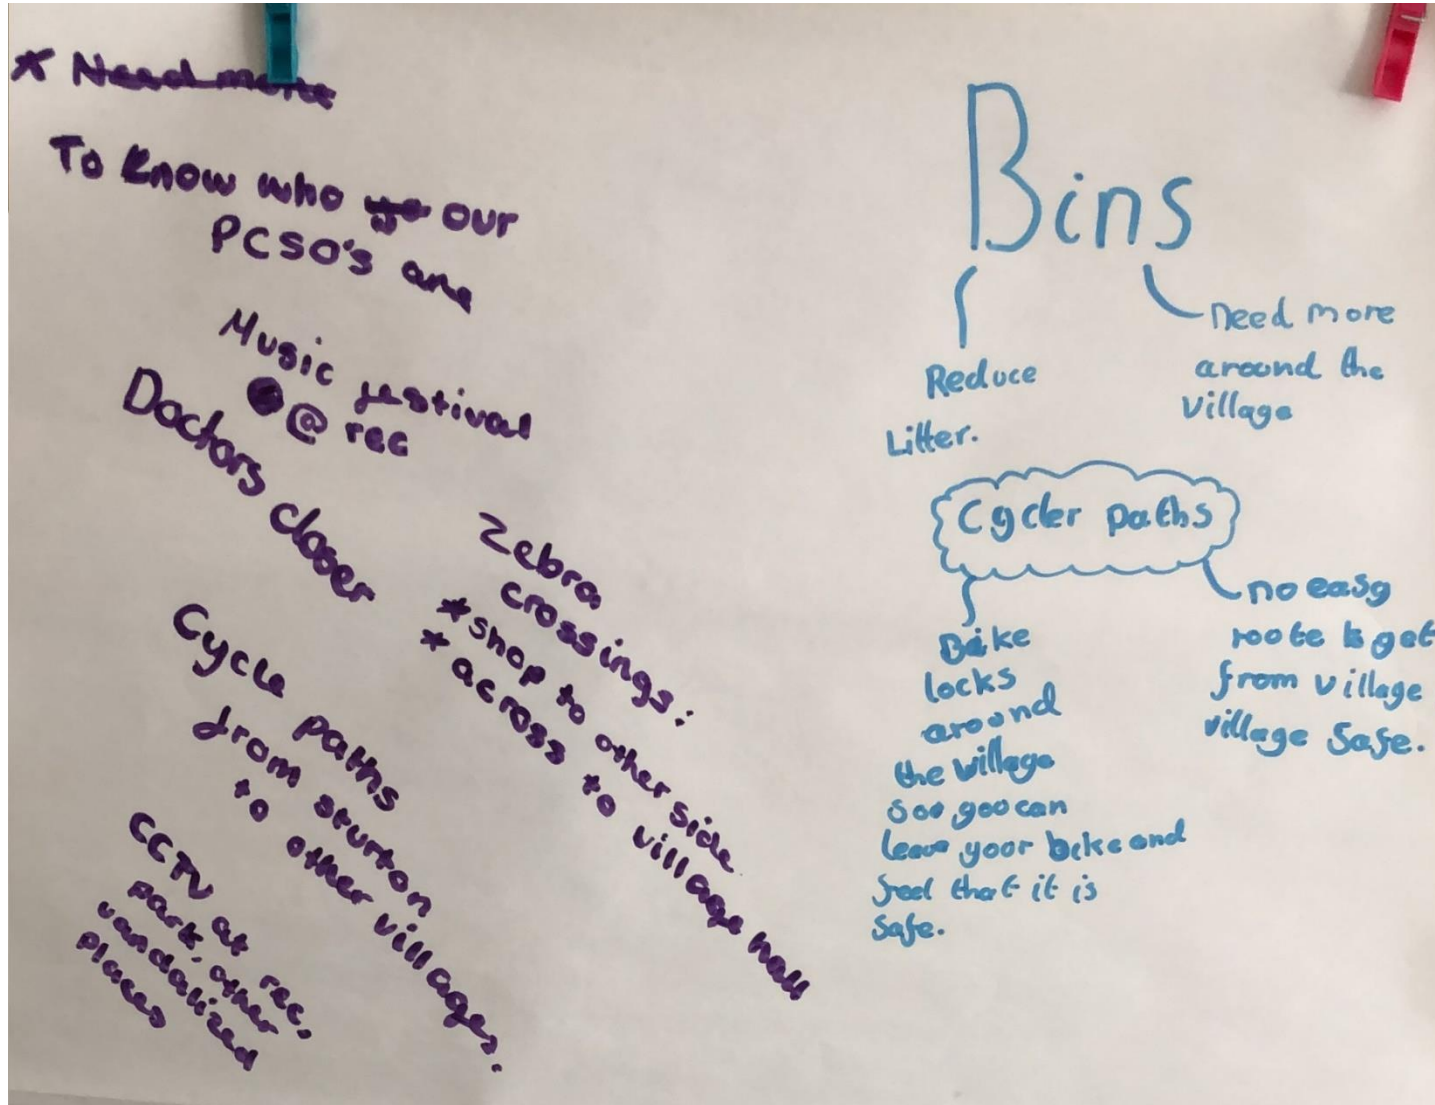 * Need more
To know who yo our
PCSO's are
Music festival
@ rec
Doctors closer
Zebra
crossings:
* shop to other side
* across to village hall
Cycle paths
from sturton
to other villages.
CCTV at rec,
park, other
vandalized
places
Bins
Reduce
Litter.
need more
around the
village
Cycler paths
Bike
locks
around
the village
soo you can
leave your bike and
feel that it is
safe.
no easy
roote to get
from village
village safe.